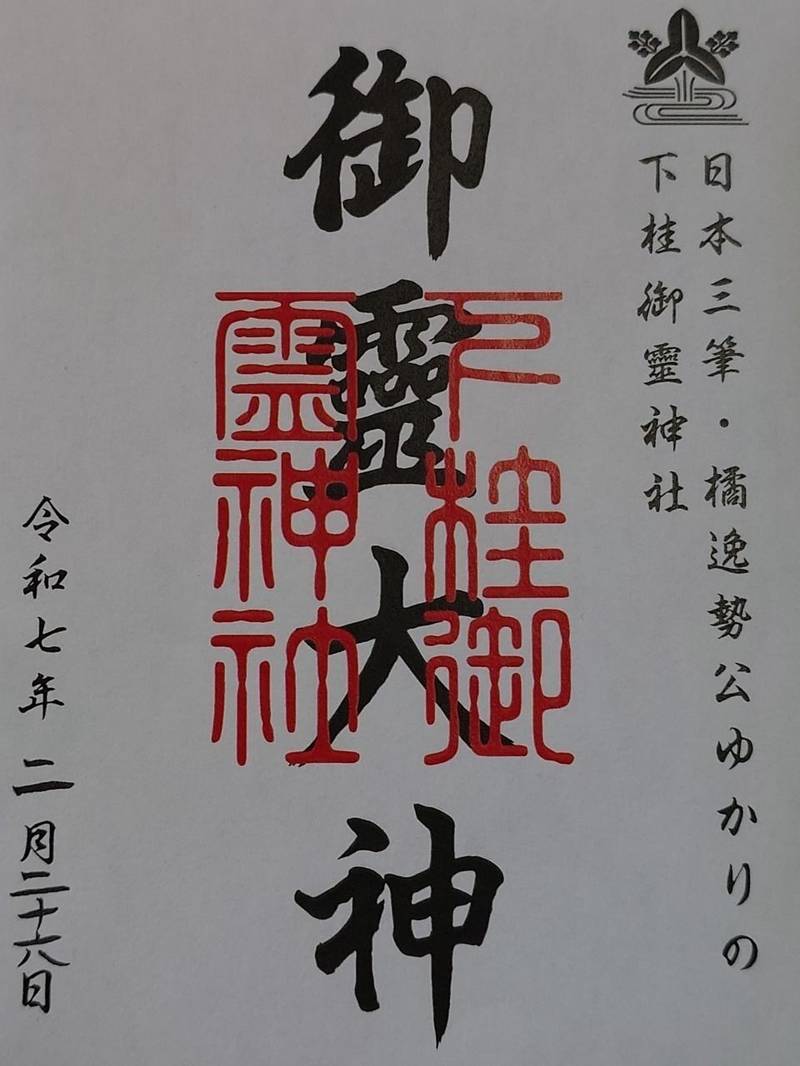 日本三筆・橘逸勢公ゆかりの
下桂御靈神社
御靈大神
下桂御
霊神社
令和七年二月二十六日